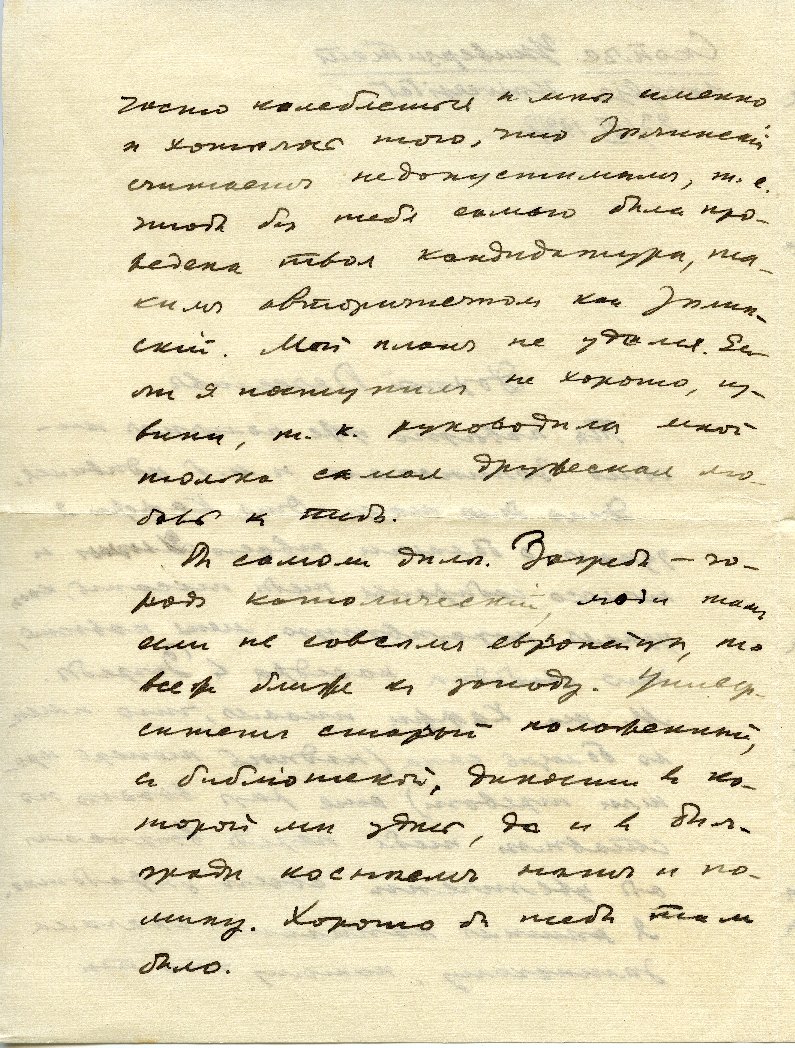 часто колеблешься и мнѣ именно
и хотѣлось того, что Зѣлинскій
считаетъ недопустимымъ, т. е.
чтобъ без тебя самого была про-
ведена твоя кандидатура, та-
кимъ авторитетомъ как Зѣлин-
скій. Мой планъ не удался. Ес-
ли я поступилъ не хорошо, из-
вини, т. к. руководила мной
только самая дружеская лю-
бовь к тебѣ.
В самом дѣлѣ. Загребъ – го-
родъ католическій, люди там
если не совсѣмъ европейцы, то
всеж ближе к западу. Универ-
ситетъ старый положенный,
с библіотекой, в ко-
торой мы удис, да и в Бѣл-
градѣ нашъ и по-
мину. Хорошо б тебѣ там
было.